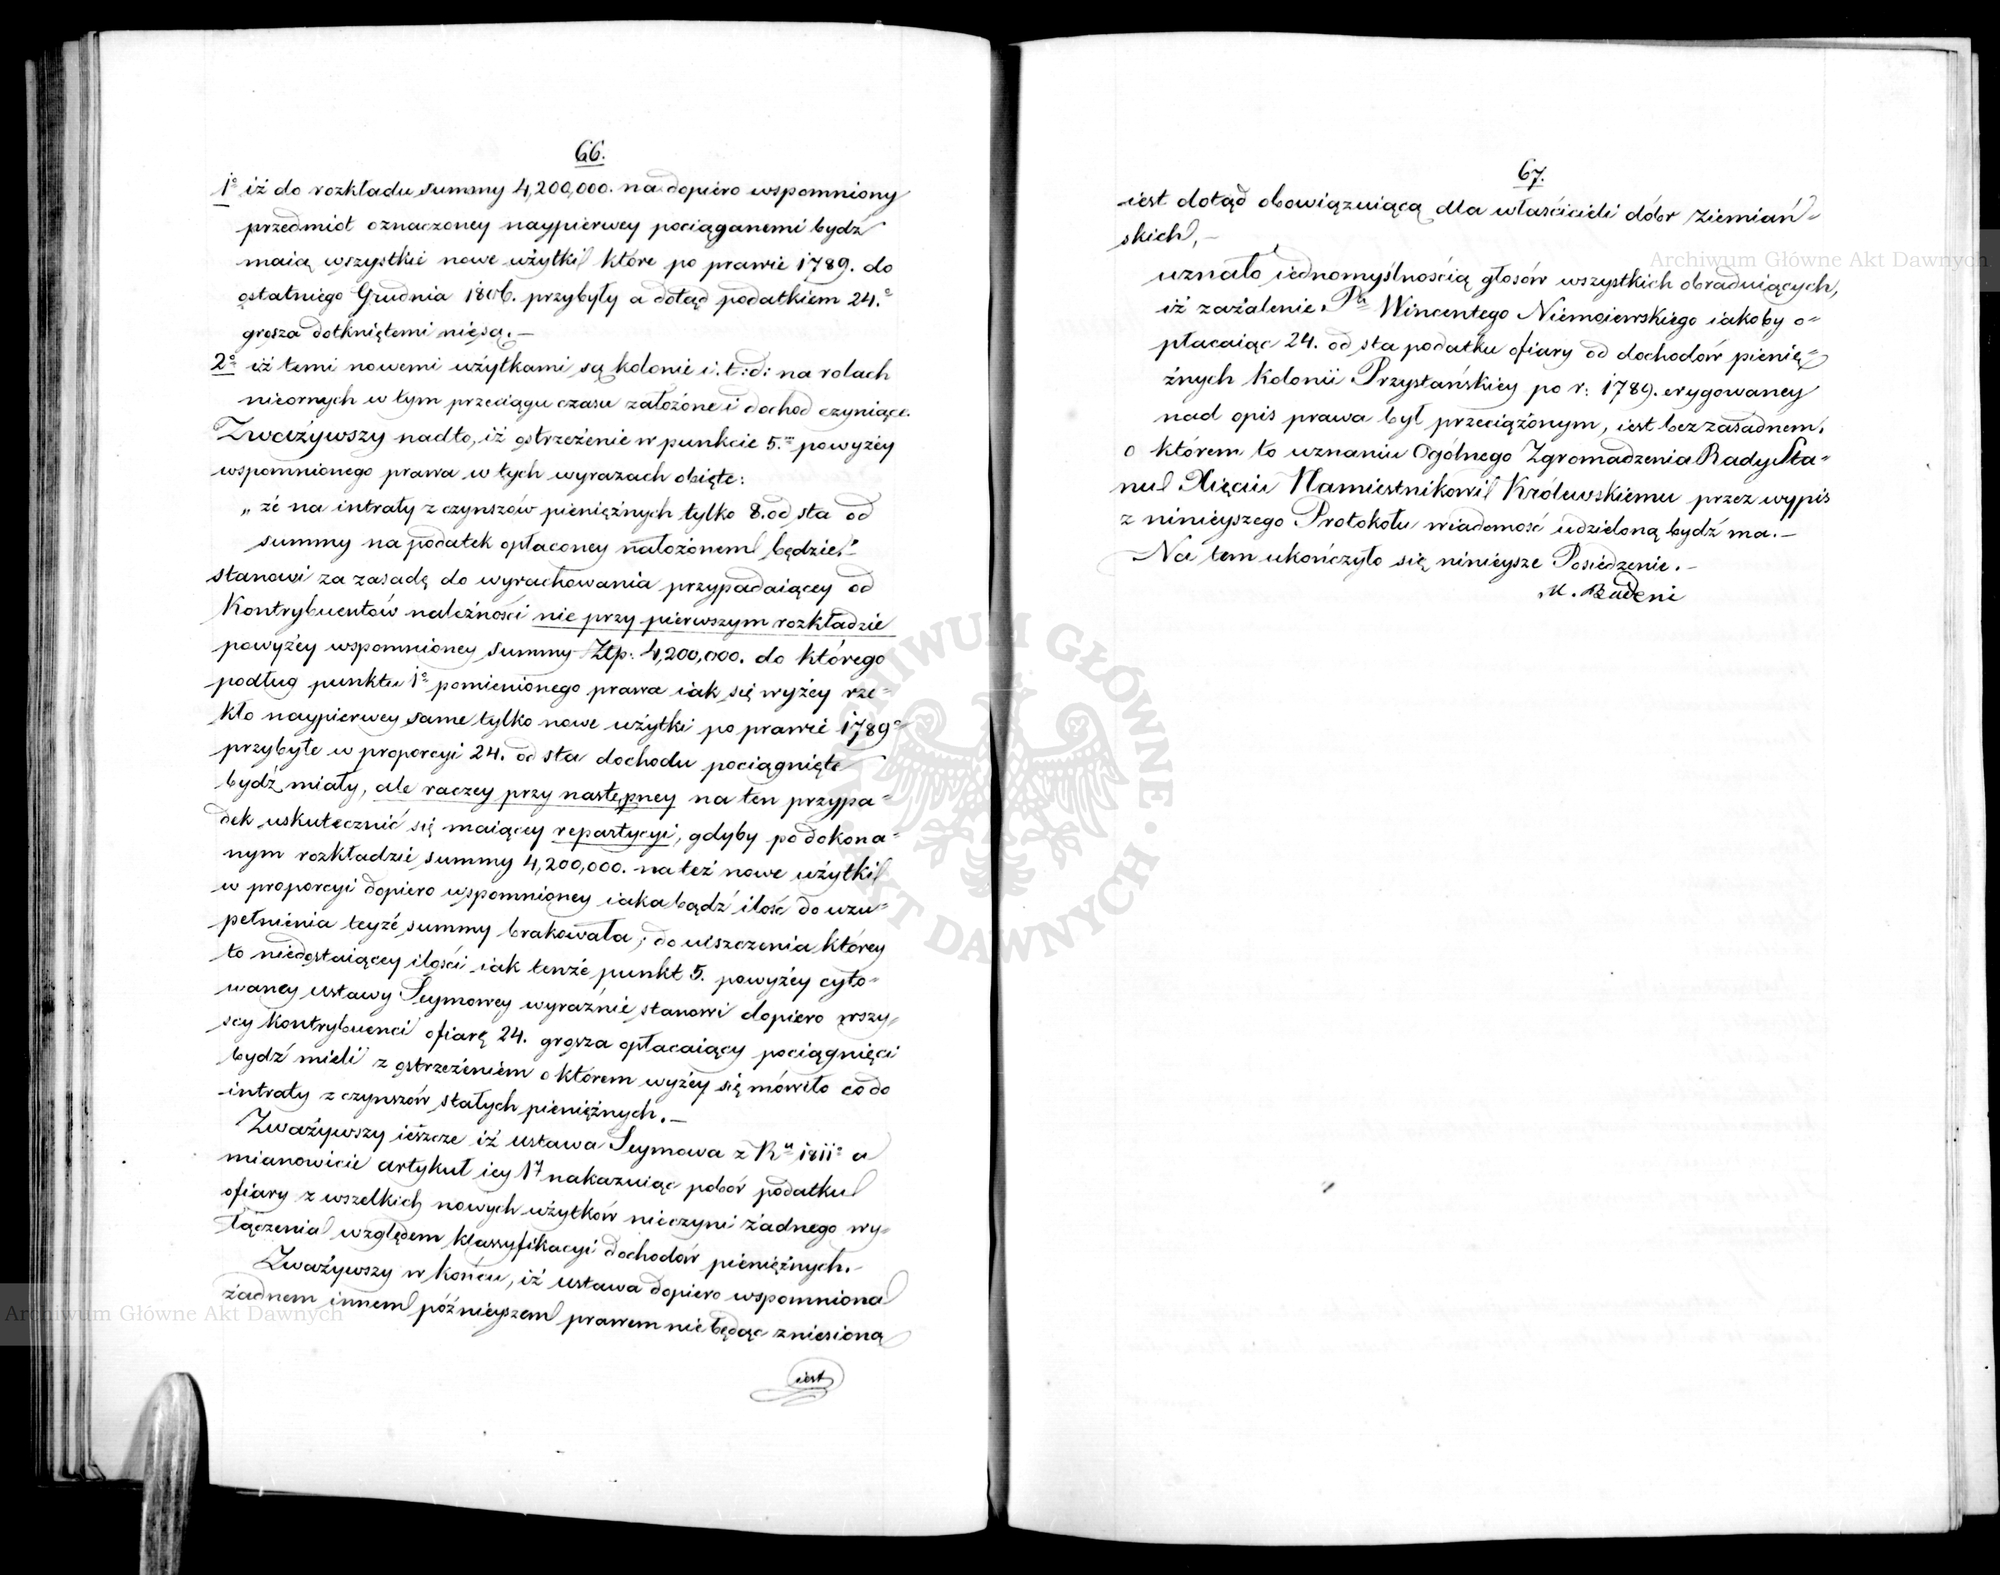 66.
1o iż do rozkładu summy 4,200,000. na dopiero wspomniony
przedmiot oznaczoney naypierwey pociąganemi bydź
maią wszystkie nowe użytki które po prawie 1789. do
ostatniego Grudnia 1806. przybyły a dotąd podatkiem 24.o
grosza dotkniętemi niesą.—
2o iż temi nowemi użytkami są kolonie i. t: d: na rolach
nieornych w tym przeciągu czasu założone i dochod czyniące.
Zważywszy nadto, iż ostrzeżenie w punkcie 5.m powyżey
wspomnionego prawa w tych wyrazach obięte:
„że na intraty z czynszów pieniężnych tylko 8. od sta od
summy na podatek opłaconey nałożonem będzie"
stanowi za zasadę do wyrachowania przypadaiącey od
Kontrybuentów należności nie przy pierwszym rozkładzie
powyżey wspomnioney summy Złp: 4,200,000. do którego
podług punktu 1o pomienionego prawa iak się wyżey rze=
kło naypierwey same tylko nowe użytki po prawie 1789o
przybyłe w proporcyi 24. od sta dochodu pociągnięte
bydź miały, ale raczey przy następney na ten przypa=
dek uskutecznić się maiącey repartycyi, gdyby po dokona=
nym rozkładzie summy 4,200,000. na też nowe użytki
w proporcyi dopiero wspomnioney iaka bądź ilość do uzu=
pełnienia teyże summy brakowała; do uiszczenia którey
to niedostaiącey ilości iak tenże punkt 5. powyżey cyto=
waney ustawy Seymowey wyraźnie stanowi dopiero wszy=
scy kontrybuenci ofiarę 24. grosza opłacaiący pociągnięci
bydź mieli z ostrzeżeniem o którem wyżey się mówiło co do
intraty z czynszów stałych pieniężnych.—
Zważywszy ieszcze iż ustawa Seymowa z Ru 1811o a
mianowicie artykuł iey 17 nakazuiąc pobór podatku
ofiary z wszelkich nowych użytków nieczyni żadnego wy=
łączenia względem klassyfikacyi dochodów pieniężnych.—
Zważywszy w końcu, iż ustawa dopiero wspomniona
żadnem innem późnieyszem prawem nie będąc zniesioną
iest
67.
iest dotąd obowiązuiącą dla właścicieli dóbr ziemiań=
skich,—
uznało iednomyślnością głosów wszystkich obraduiących,
iż zażalenie Pa Wincentego Niemoiewskiego iakoby o=
płacaiąc 24. od sta podatku ofiary od dochodów pienię=
żnych Kolonii Przystańskiey po r: 1789. erygowaney
nad opis prawa był przeciążonym, iest bezzasadnem.
o którem to uznaniu Ogólnego Zgromadzenia Rady Sta=
nu Xięciu Namiestnikowi Królewskiemu przez wypis
z ninieyszego Protokołu wiadomość udzieloną bydź ma.—
Na tem ukończyło się ninieysze Posiedzenie.—
M. Badeni
Archiwum Główne Akt Dawnych
Archiwum Główne Akt Dawnych
ARCHIWUM GŁÓWNE · AKT DAWNYCH ·